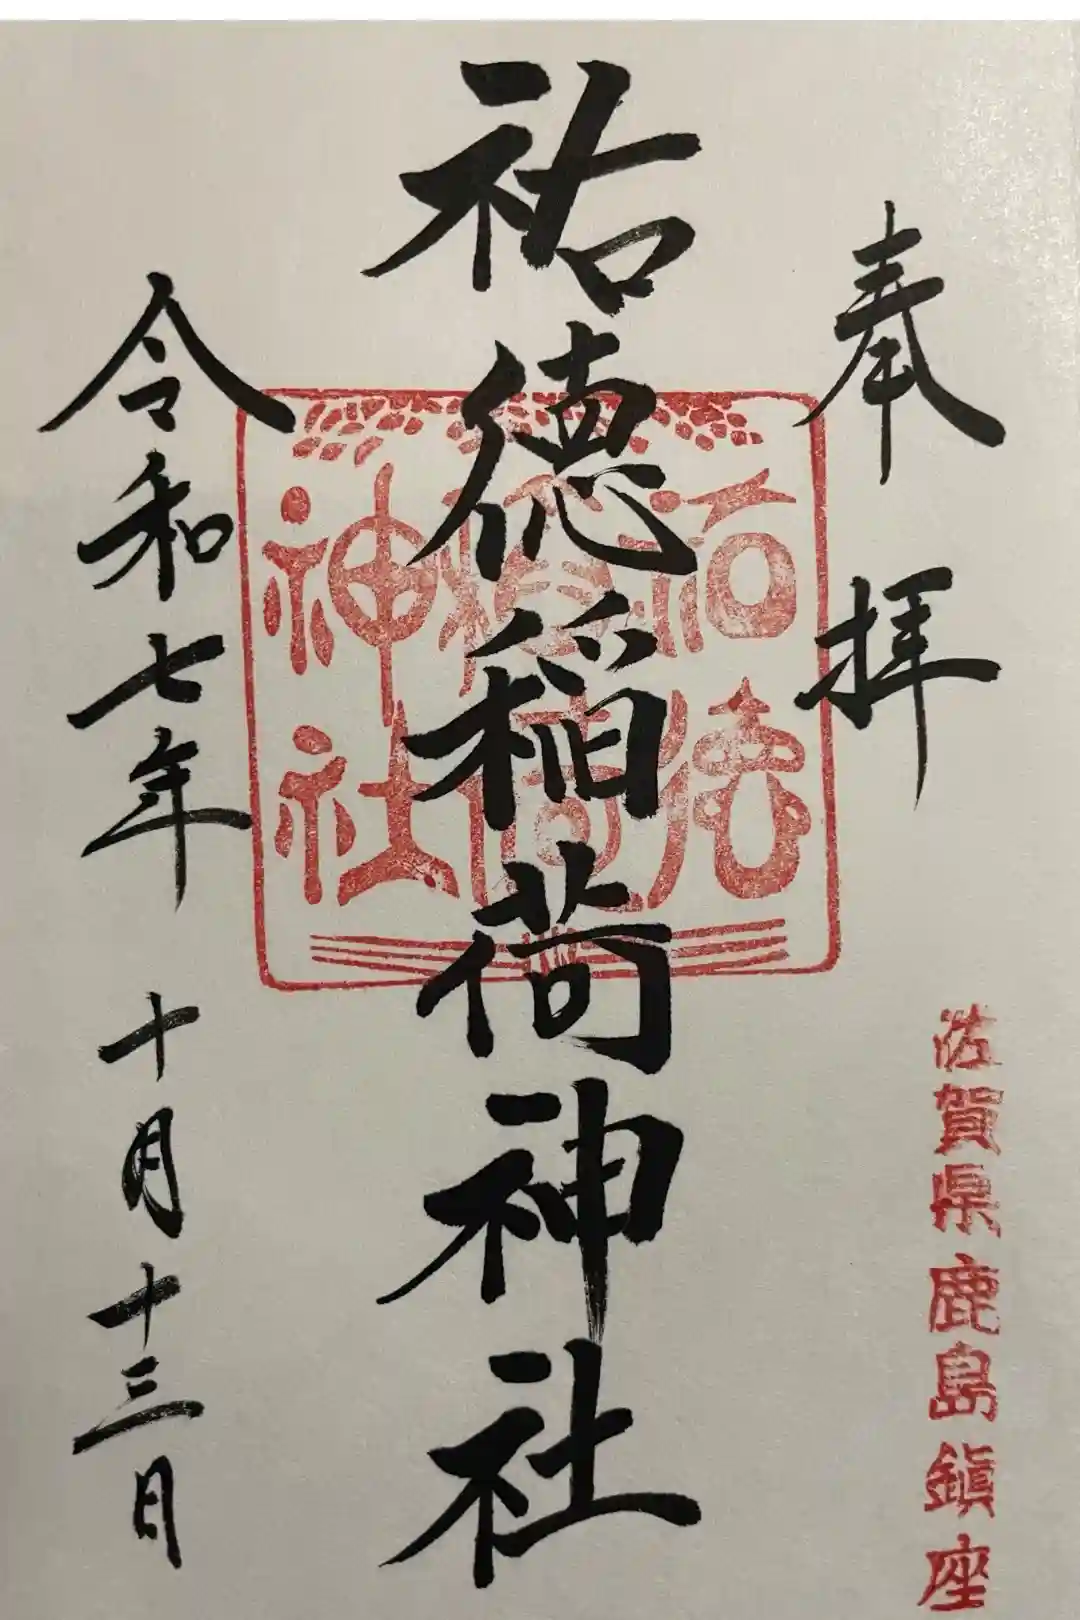 奉拝
佐賀県鹿島鎮座
祐徳稲荷神社
祐徳
稲荷
神社
令和七年 十月十三日